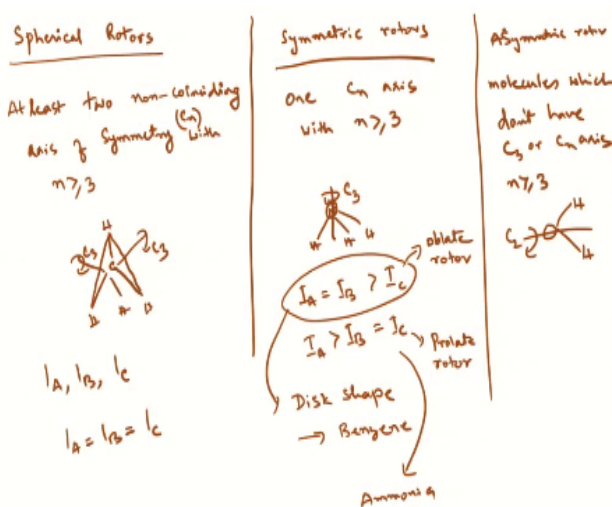 Spherical Rotors
At least two non-coinciding
axis of symmetry (Cn) with
n ≥, 3
H
C3
C3
C
H H H
I_A, I_B, I_C
I_A = I_B = I_C
Symmetric rotors
One Cn axis
with n ≥, 3
C3
H H H
oblate
rotor
I_A = I_B > I_C
I_A > I_B = I_C
Prolate
rotor
Disk shape
→ Benzene
Ammonia
ASymmetric rotor
molecules which
don't have
C3 or Cn axis
n ≥, 3
H
C2
H